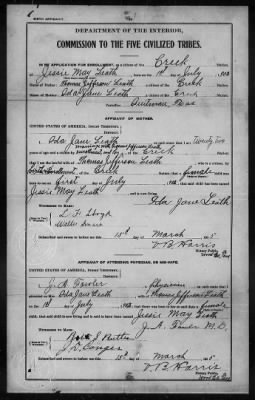 BIRTH AFFIDAVIT.
DEPARTMENT OF THE INTERIOR,
COMMISSION TO THE FIVE CIVILIZED TRIBES.
IN RE APPLICATION FOR ENROLLMENT, as a citizen of the Creek Nation,
of Jessie May Leath, born on the 1st day of July, 190
Name of Father: Thomas Jefferson Leath a citizen of the Creek Nation.
Name of Mother: Ida Jane Leath a citizen of the Creek Nation.
Postoffice
AFFIDAVIT OF MOTHER.
UNITED STATES OF AMERICA, INDIAN TERRITORY,
District.
I, Ida Jane Leath, on oath state that I am Twenty Two
years of age and a citizen by of the Creek Nation;
that I am the lawful wife of Thomas Jefferson Leath, who is a
citizen, by of the Creek Nation; that a female child was
born to me on first day of July, 190 ; that said child has been named
Jessie May Leath, and is now living.
Ida Jane Leath
WITNESSES TO MARK:
L. F. Lloyd
Subscribed and sworn to before me this 15th day of March, 1905
V. B. Harris
Notary Public.
AFFIDAVIT OF ATTENDING PHYSICIAN, OR MID-WIFE.
UNITED STATES OF AMERICA, INDIAN TERRITORY,
District.
I, J. A. Fowler, a physician, on oath state that I
attended on Mrs. Ida Jane Leath, wife of Thomas Jefferson Leath
on the 1st day of July, 190 ; that there was born to her on said date a female
child; that said child is now living and is said to have been named Jessie May Leath
J. A. Fowler M. D.
WITNESSES TO MARK:
Subscribed and sworn to before me this 15th day of March, 1905
V. B. Harris
Notary Public.